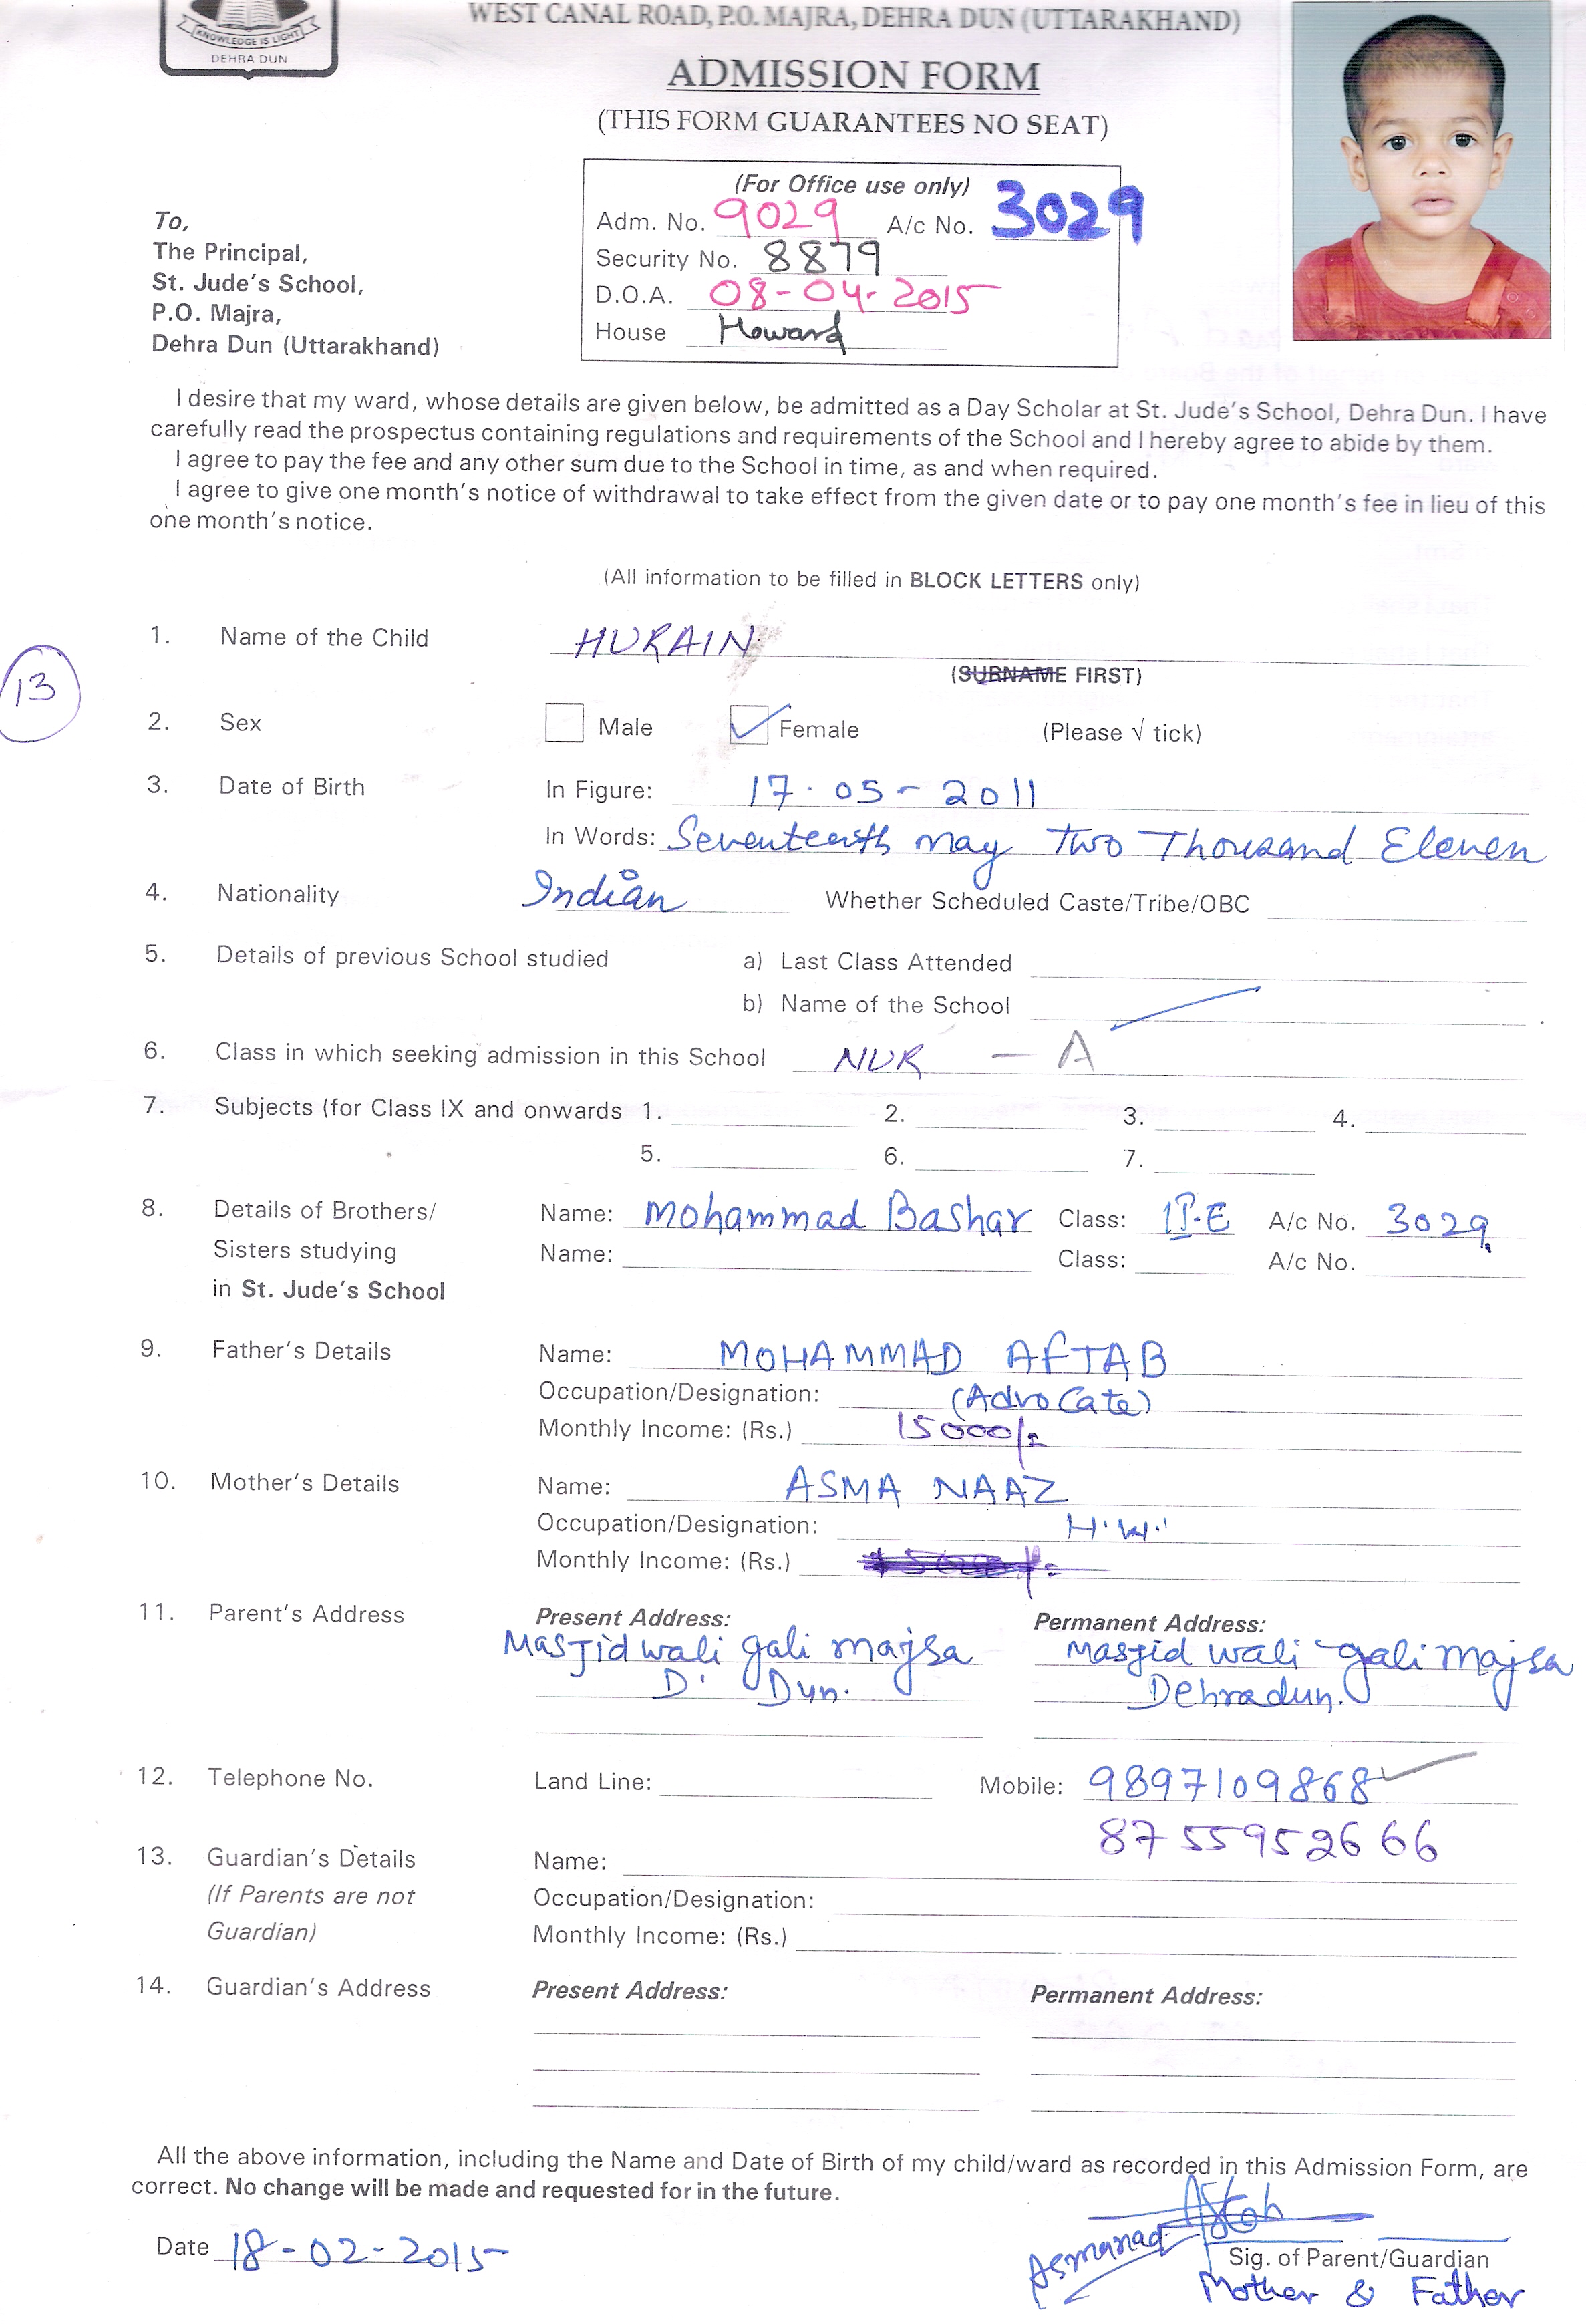 KNOWLEDGE IS LIGHT
DEHRA DUN
WEST CANAL ROAD, P.O. MAJRA, DEHRA DUN (UTTARAKHAND)
ADMISSION FORM
(THIS FORM GUARANTEES NO SEAT)
(For Office use only)
Adm. No. 9029 A/c No. 3029
Security No. 8879
D.O.A. 08-04-2015
House Howard
To,
The Principal,
St. Jude's School,
P.O. Majra,
Dehra Dun (Uttarakhand)
I desire that my ward, whose details are given below, be admitted as a Day Scholar at St. Jude's School, Dehra Dun. I have
carefully read the prospectus containing regulations and requirements of the School and I hereby agree to abide by them.
I agree to pay the fee and any other sum due to the School in time, as and when required.
I agree to give one month's notice of withdrawal to take effect from the given date or to pay one month's fee in lieu of this
one month's notice.
(All information to be filled in BLOCK LETTERS only)
1. Name of the Child HURAIN
(SURNAME FIRST)
13
2. Sex Male Female (Please √ tick)
3. Date of Birth In Figure: 17.05-2011
In Words: Seventeenth may Two Thousand Eleven
4. Nationality Indian Whether Scheduled Caste/Tribe/OBC
5. Details of previous School studied a) Last Class Attended
b) Name of the School
6. Class in which seeking admission in this School NUR — A
7. Subjects (for Class IX and onwards 1. 2. 3. 4.
5. 6. 7.
8. Details of Brothers/ Name: Mohammad Bashar Class: II-E A/c No. 3029
Sisters studying Name: Class: A/c No.
in St. Jude's School
9. Father's Details Name: MOHAMMAD AFTAB
Occupation/Designation: (Advocate)
Monthly Income: (Rs.) 15000/=
10. Mother's Details Name: ASMA NAAZ
Occupation/Designation: H.W.
Monthly Income: (Rs.)
11. Parent's Address Present Address: Permanent Address:
Masjid wali gali majra Masjid wali gali Majra
D. Dun. Dehradun.
12. Telephone No. Land Line: Mobile: 9897109868
8755952666
13. Guardian's Details Name:
(If Parents are not Occupation/Designation:
Guardian) Monthly Income: (Rs.)
14. Guardian's Address Present Address: Permanent Address:
All the above information, including the Name and Date of Birth of my child/ward as recorded in this Admission Form, are
correct. No change will be made and requested for in the future.
Date 18-02-2015
Sig. of Parent/Guardian
Mother & Father